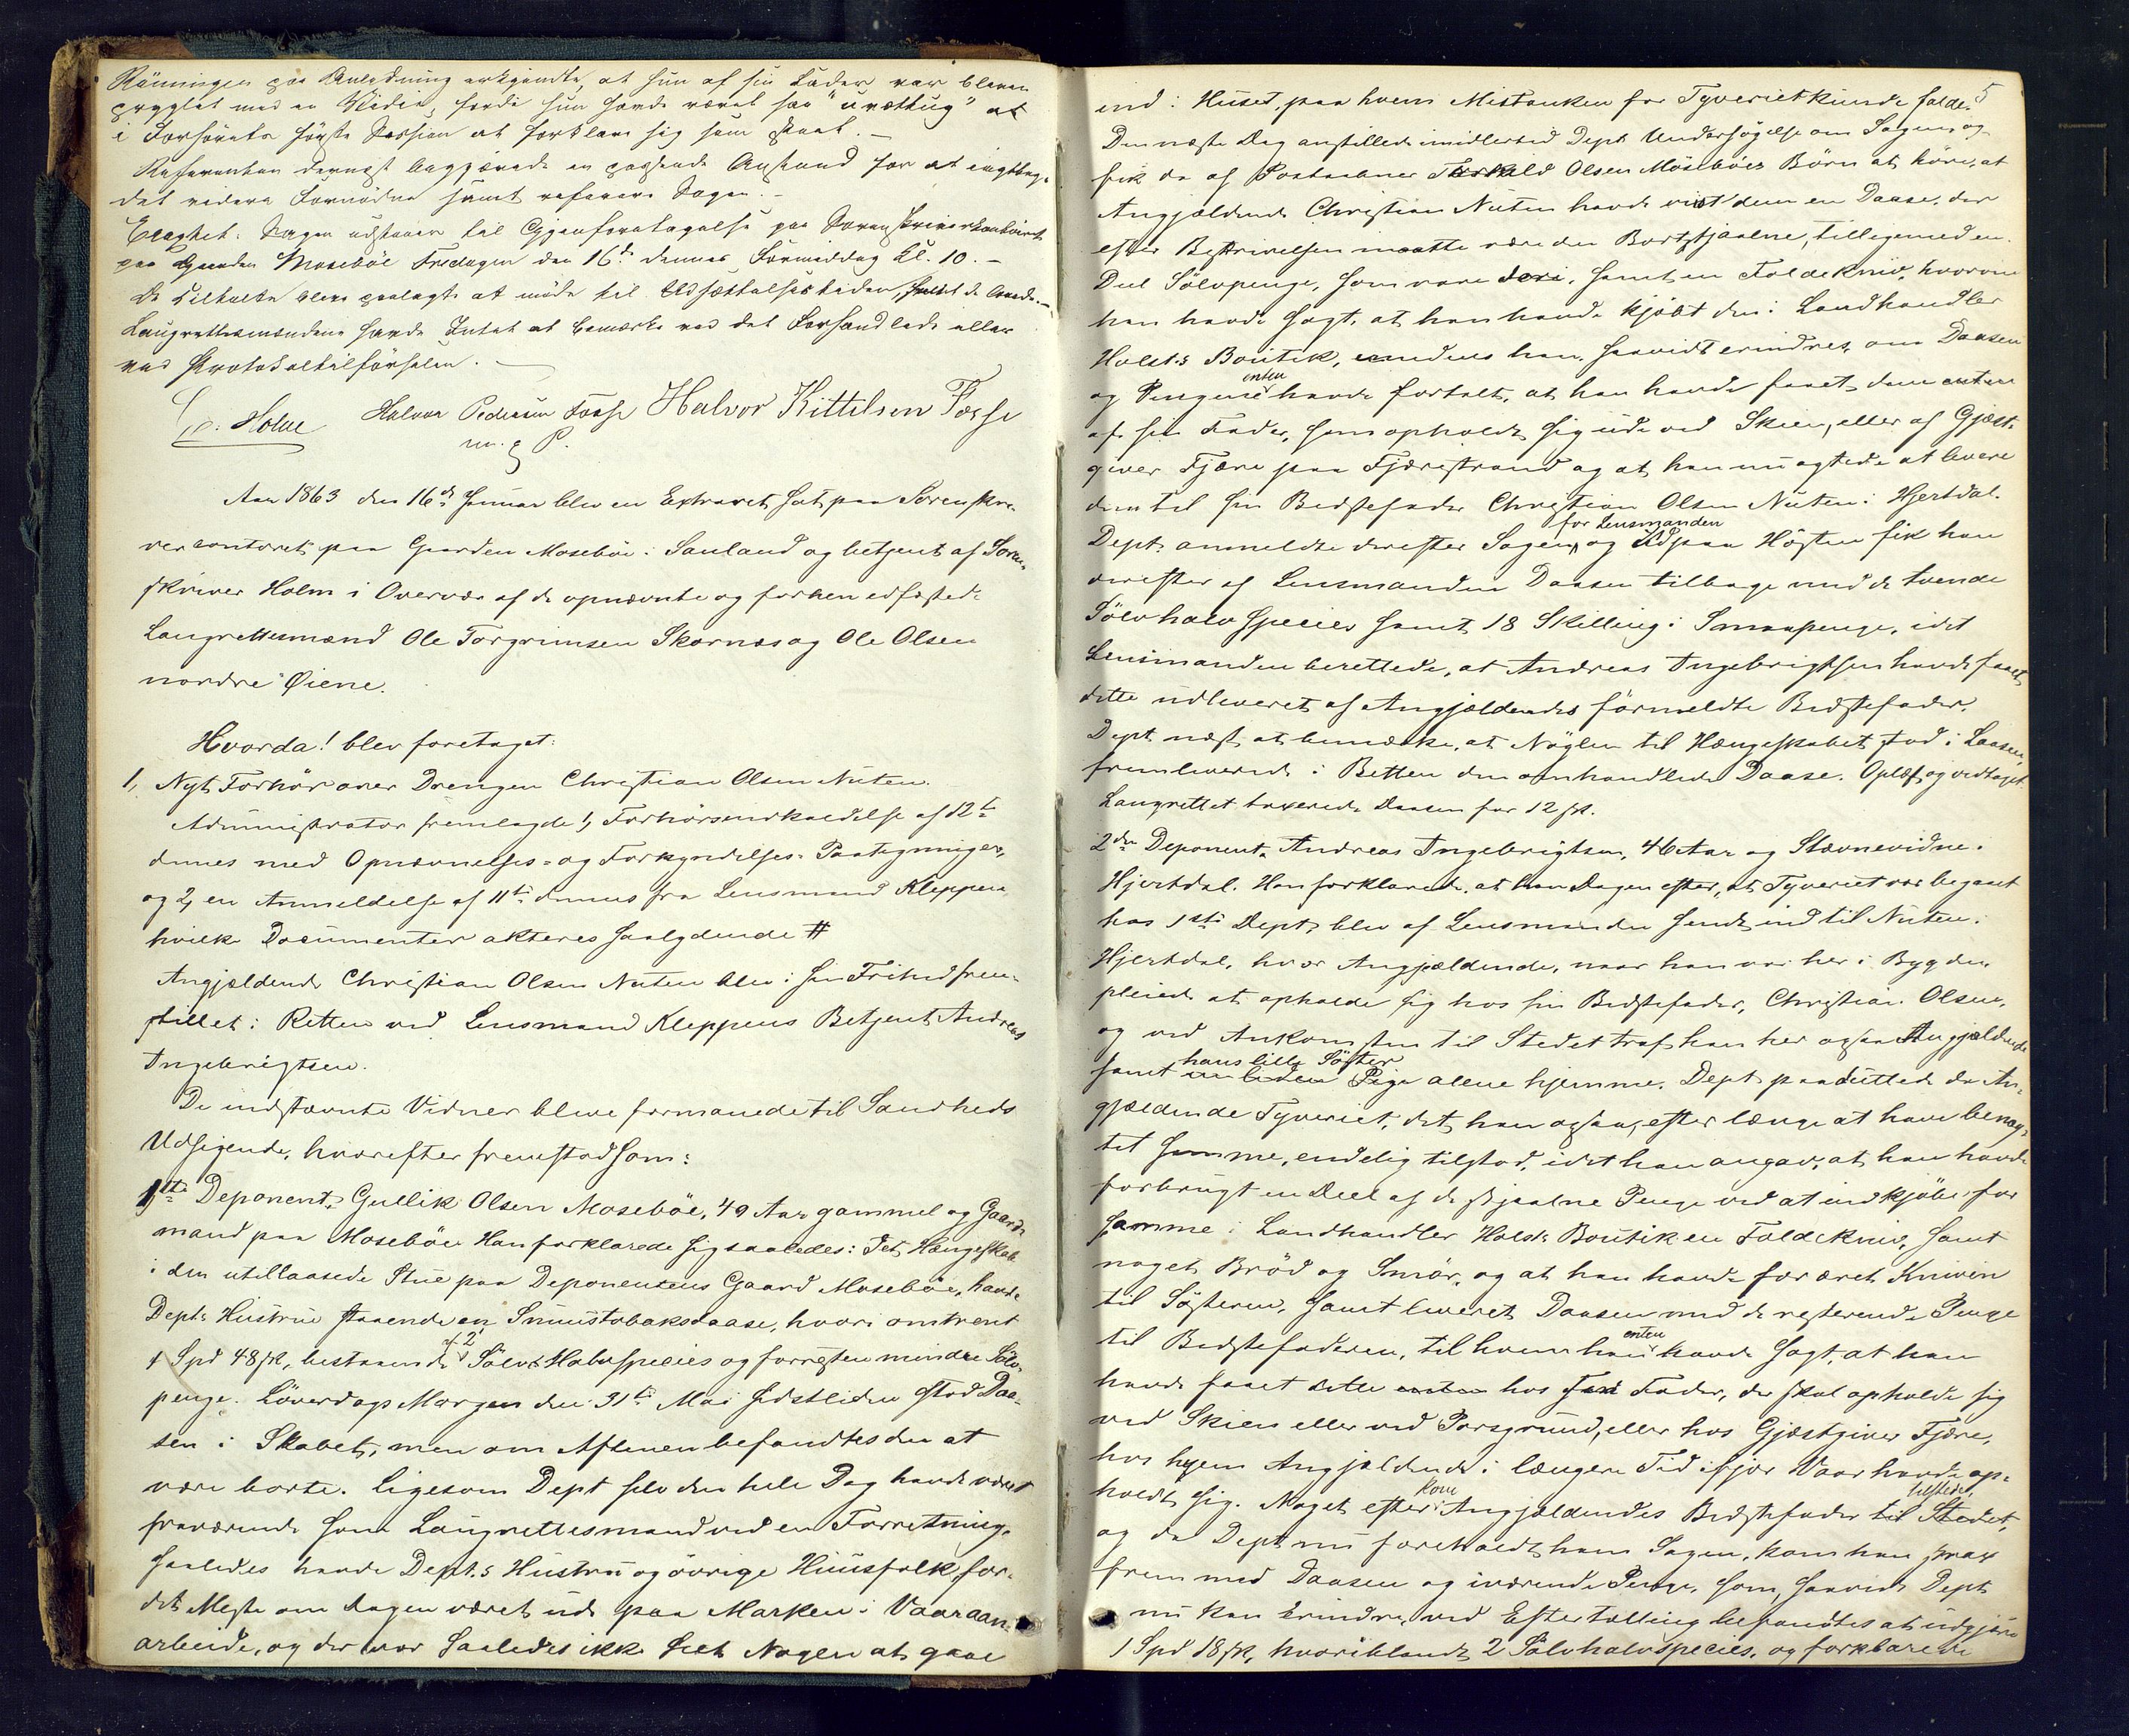 Rönningen paa Anledning erkjendte, at hun af sin Fader var bleven
pryglet med en Vidie, fordi hun havde været saa "urettug" at
i Forhörets förste Session at forklare sig som skeet.
Referenten dernæst begjærede en passende Anstand for at iagttage
det videre Fornödne samt referere Sagen.
Eragtet: Sagen udstaaer til Gjenforetagelse paa Sorenskriverkontoiret
paa Gaarden Mosebøe Fredagen den 16de dennes Formiddag Kl. 10.
De Tiltalte bleve paalagte at möde til Udsættelsestiden,
Laugrettesmændene havde Intet at bemærke ved det Forhandlede eller
ved Protokoltilförselen.
Holm Halvor Pedersen Fosse Halvor Kittilsen Fosse
m. P.
Aar 1863 den 16de Januar blev en Extraret sat paa Sorenskri-
vercontoret paa Gaarden Mosebøe i Sauland og betjent af Soren-
skriver Holm i Overvær af de opnævnte og forhen edfæstede
Laugrettesmænd Ole Torgrimsen Skarnes og Ole Olsen
nordre Øiene.
Hvorda! blev foretaget:
1, Nyt Forhör over Drengen Christian Olsen Nuten.
Administrator fremlagde 1, Forhörsindkaldelse af 12te
dennes med Opnævnelses- og Forkyndelses-Paategninger,
og 2, en Anmeldelse af 11te dennes fra Lensmand Kleppen
hvilke Documenter akteres saalydende #
Angjældende Christian Olsen Nuten blev i sin Frihed frem-
stillet i Retten ved Lensmand Kleppens Betjent Andreas
Ingebrigtsen.
De indstævnte Vidner bleve formanede til Sandheds
Udsigende, hvorefter fremstod som:
1ste Deponent. Gullik Olsen Mosebøe, 49 Aar gammel og Gaard-
mand paa Mosebøe. Han forklarede sig saaledes: I et Hængeskab
i den utillaasede Stue paa Deponentens Gaard Mosebøe, havde
Depts Hustru staaende en Snuustobaksdaase, hvori omtrent
1 Spd 48 sk, bestaaende af 2 Sölv Halvspecies og forresten mindre Sölv-
penge. Löverdags Morgen den 31te Mai sidstleden stod Daa-
sen i Skabet, men om Aftenen befandtes den at
være borte. Ligesom Dept selv den hele Dag havde været
fraværende som Laugrettesmand ved en Forretning,
saaledes havde Depts Hustru og övrige Huusfolk for
det Meste om Dagen været ude paa Marken i Vaaraan-
arbeide, og der var saaledes ikke seet Nogen at gaae
5
ind i Huset, paa hvem Mistanken for Tyveriet kunde falde.
Den næste Dag anstillede imidlertid Dept Undersögelse om Sagen, og
fik da af Postaabner Torkild Olsen Mösebøes Börn at höre, at
Angjældende Christian Nuten havde viist dem en Daase, der
efter Beskrivelsen maatte være den Bortstjaalne, tilligemed en
Deel Sölvpenge, som vare deri, samt en Foldekniv, hvorom
han havde sagt, at han havde kjöbt den i Landhandler
Holst's Boutik, imedens han, saavidt erindres, om Daasen
og Pengene enten havde fortalt, at han havde faaet dem enten
af sin Fader, som opholdt sig ude ved Skien, eller af Gjæst-
giver Fjære paa Fjærestrand og at han nu agtede at levere
dem til sin Bedstefader Christian Olsen Nuten i Hjertdal.
Dept anmeldte derefter Sagen for Lensmanden, og Udpaa Hösten fik han
derefter af Lensmanden Daasen tilbage med de tvende
Sölvhalvspecies samt 18 Skilling i Smaapenge, idet
Lensmanden berettede, at Andreas Ingebrigtsen havde faaet
dette udleveret af Angjældendes förmeldte Bedstefader.
Dept næst at bemærke, at Nöglen til Hængeskabet stod i Laasen,
fremleverede i Retten den omhandlede Daase. Oplæst og vedtaget.
Laugrettet taxerede Daasen for 12 sk.
2den Deponent. Andreas Ingebrigtsen, 46 Aar og Stævnevidne i
Hjertdal. Han forklarede, at han Dagen efter, at Tyveriet var begaaet
hos 1ste Dept, blev af Lensmanden sendt ind til Nuten i
Hjertdal, hvor Angjældende, naar han var her i Bygden
pleiede at opholde sig hos sin Bedstefader, Christian Olsen,
og ved Ankomsten til Stedet traf han her ogsaa Angjældende
samt hans lille Söster en liden Pige alene hjemme. Dept paaduttede da An-
gjældende Tyveriet, det han ogsaa, efter længe at have benæg-
tet samme, endelig tilstod, idet han angav, at han havde
forbrugt en Deel af de stjaalne Penge ved at indkjöbe for
samme i Landhandler Holsts Boutik en Foldekniv, samt
noget Bröd og Smör, og at han havde foræret Kniven
til Sösteren, samt leveret Daasen med de resterende Penge
til Bedstefaderen, til hvem han enten havde sagt, at han
havde faaet dette enten hos Fader, der skal opholde sig
ved Skien eller ved Porsgrund, eller hos Gjæstgiver Fjære,
hos hvem Angjældende i længere Tid ifjor Vaar havde op-
holdt sig. Noget efter kom Angjældendes Bedstefader tilstede til Stedet,
og da Dept nu foreholdt ham Sagen, kom han strax
frem med Daasen og iværende Penge, som, saavidt Dept
nu kan erindre, ved Eftertælling befandtes at udgjöre
1 Spd 18 sk, hvoriblandt 2 Sölvhalvspecies, og forklarede